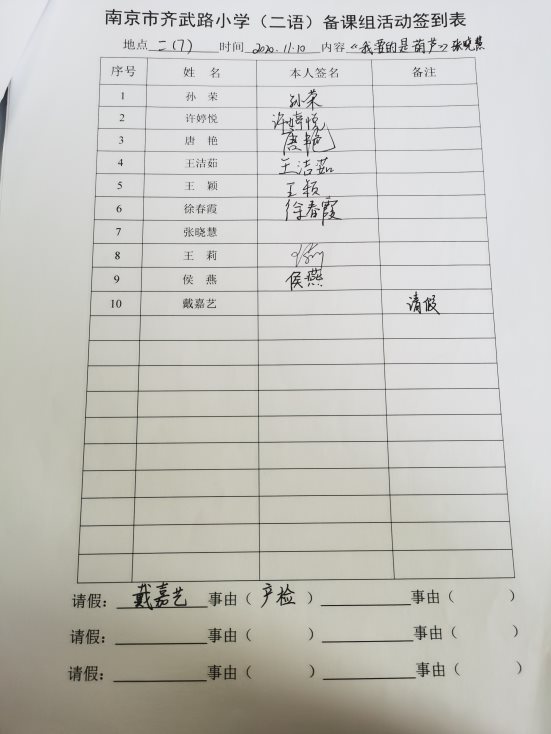 南京市齐武路小学（二语）备课组活动签到表
地点 二(7) 时间 2020.11.10 内容 《我要的是葫芦》张晓慧
序号 姓 名 本人签名 备注
1 孙 荣 孙荣
2 许婷悦 许婷悦
3 唐 艳 唐艳
4 王洁茹 王洁茹
5 王 颖 王颖
6 徐春霞 徐春霞
7 张晓慧
8 王 莉
9 侯 燕 侯燕
10 戴嘉艺 请假
请假：戴嘉艺 事由（ 产检 ） 事由（ ）
请假： 事由（ ） 事由（ ）
请假： 事由（ ） 事由（ ）